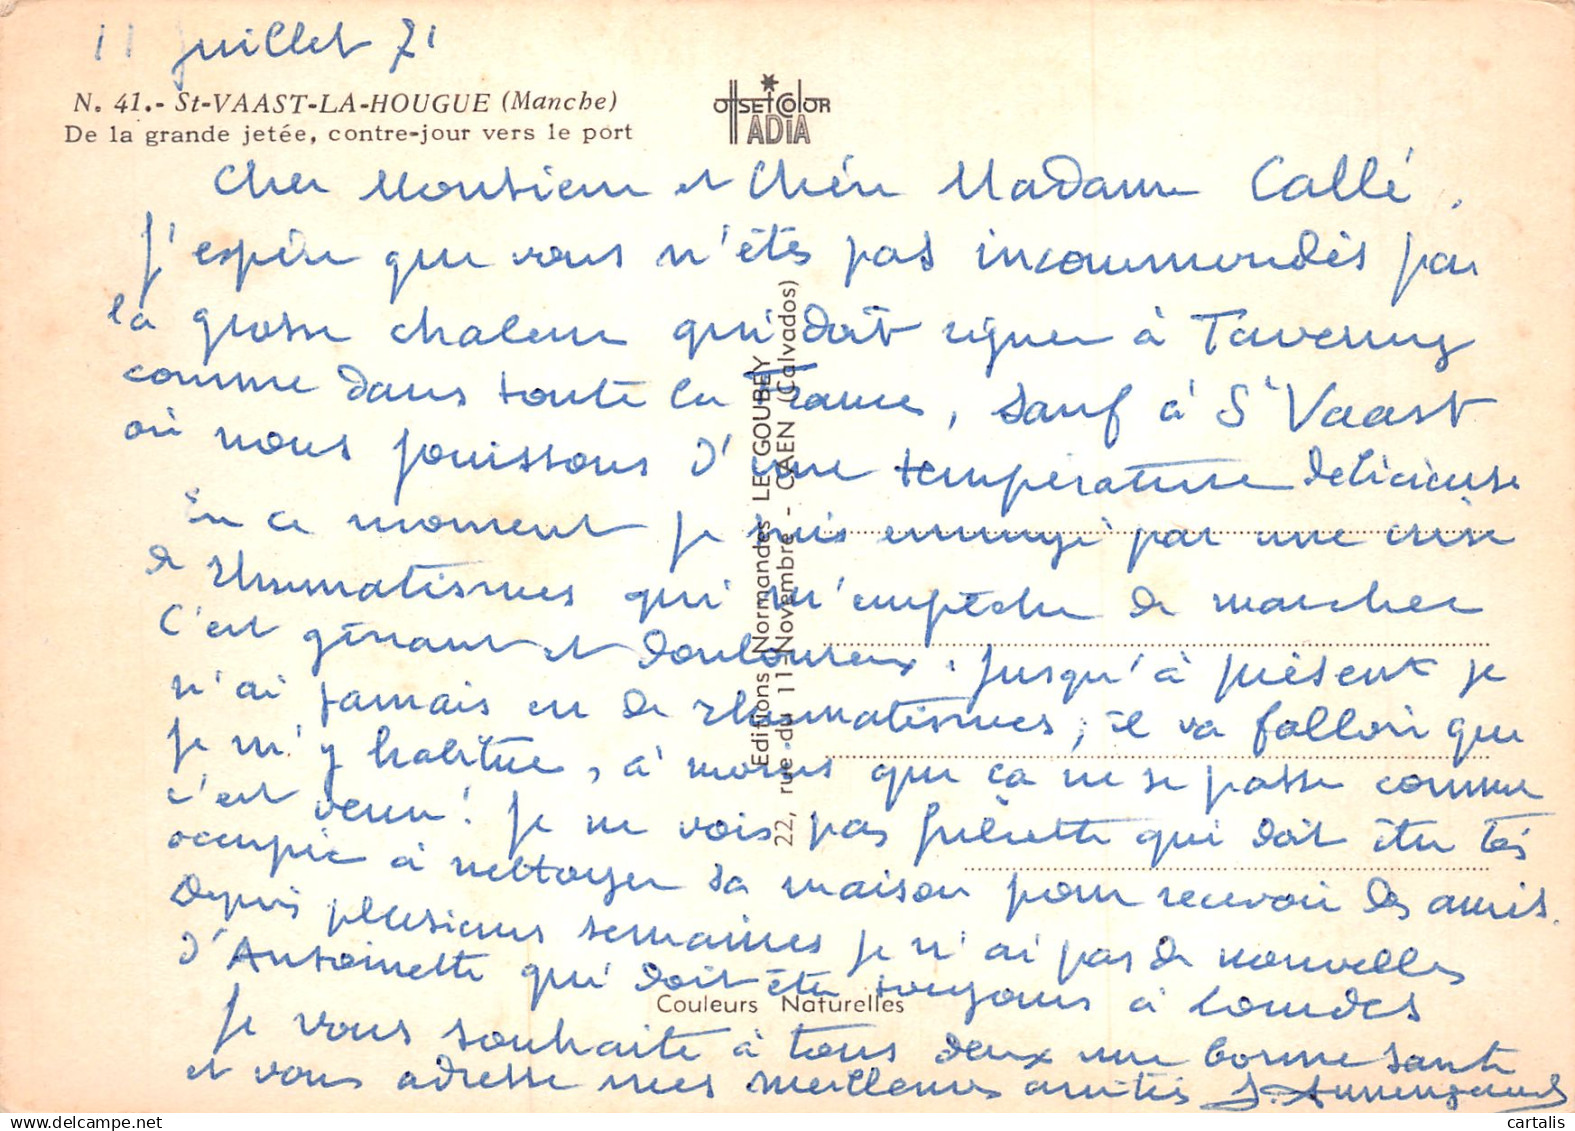 11 juillet 71
N. 41.- St-VAAST-LA-HOUGUE (Manche)
De la grande jetée, contre-jour vers le port
OffSET COlOR
ADIA
Cher Monsieur et Chère Madame Callé,
J'espère que vous n'êtes pas incommodés par
la grosse chaleur qui doit régner à Taverny
comme dans toute la France, sauf à St Vaast
où nous jouissons d'une température délicieuse
En ce moment je suis ennuyé par une crise
de rhumatismes qui m'empêche de marcher
C'est gênant et douloureux. Jusqu'à présent je
n'ai jamais eu de rhumatismes, il va falloir que
je m'y habitue, à moins que ça ne se passe comme
c'est venu! Je ne vois pas Juliette qui doit être très
occupée à nettoyer sa maison pour recevoir des amis.
Depuis plusieurs semaines je n'ai pas de nouvelles
d'Antoinette qui doit être toujours à Lourdes
Je vous souhaite à tous deux une bonne santé
et vous adresse mes meilleures amitiés
Editions Normandes LE GOUBEY
22, rue du 11-Novembre - CAEN (Calvados)
Couleurs Naturelles
cartalis